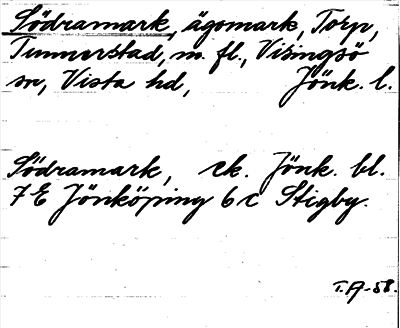 Södramark, ägomark, Torp,
Tunnerstad, m. fl., Visingsö
sn, Vista hd, Jönk. l.
Södramark, ek. Jönk. bl.
7 E Jönköping 6 c Stigby.
T.A-58.